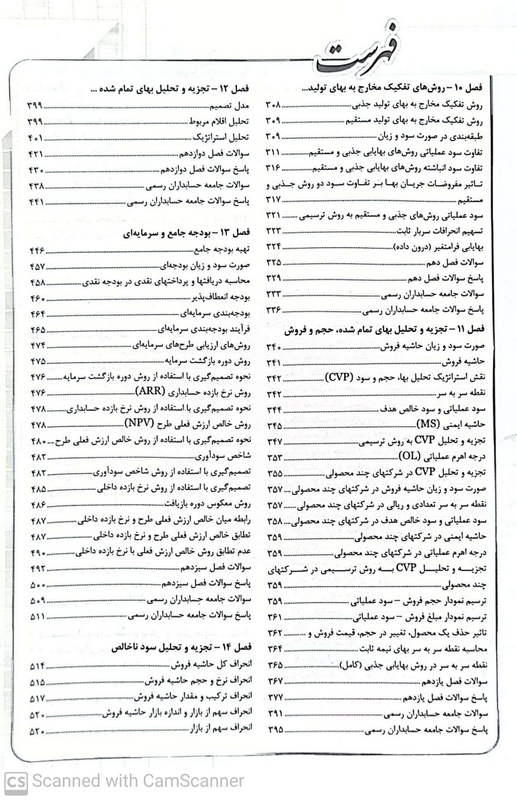 فهرست
فصل ۱۰ – روش‌های تفکیک مخارج به بهای تولید...
روش تفکیک مخارج به بهای تولید جذبی ... ۳۰۸
روش تفکیک مخارج به بهای تولید مستقیم ... ۳۰۹
طبقه‌بندی در صورت سود و زیان ... ۳۰۹
تفاوت سود عملیاتی روش‌های بهایابی جذبی و مستقیم ... ۳۱۱
تفاوت سود انباشته روش‌های بهایابی جذبی و مستقیم ... ۳۱۶
تاثیر مفروضات جریان بها بر تفاوت سود دو روش جذبی و
مستقیم ... ۳۱۷
سود عملیاتی روش‌های جذبی و مستقیم به روش ترسیمی ... ۳۲۱
تسهیم انحرافات سربار ثابت ... ۳۲۳
بهایابی فرامتغیر (درون داده) ... ۳۲۴
سوالات فصل دهم ... ۳۲۵
پاسخ سوالات فصل دهم ... ۳۲۹
سوالات جامعه حسابداران رسمی ... ۳۳۳
پاسخ سوالات جامعه حسابداران رسمی ... ۳۳۶
فصل ۱۱ – تجزیه و تحلیل بهای تمام شده، حجم و فروش
صورت سود و زیان حاشیه فروش ... ۳۴۰
حاشیه فروش ... ۳۴۱
نقش استراتژیک تحلیل بها، حجم و سود (CVP) ... ۳۴۲
نقطه سر به سر ... ۳۴۲
سود عملیاتی و سود خالص هدف ... ۳۴۴
حاشیه ایمنی (MS) ... ۳۴۵
تجزیه و تحلیل CVP به روش ترسیمی ... ۳۴۷
درجه اهرم عملیاتی (OL) ... ۳۵۳
تجزیه و تحلیل CVP در شرکتهای چند محصولی ... ۳۵۵
صورت سود و زیان حاشیه فروش در شرکتهای چند محصولی ... ۳۵۷
نقطه سر به سر تعدادی و ریالی در شرکتهای چند محصولی ... ۳۵۷
سود عملیاتی و سود خالص هدف در شرکتهای چند محصولی ... ۳۵۸
حاشیه ایمنی در شرکتهای چند محصولی ... ۳۵۹
درجه اهرم عملیاتی در شرکتهای چند محصولی ... ۳۵۹
تجزیه و تحلیل CVP به روش ترسیمی در شرکتهای
چند محصولی ... ۳۵۹
ترسیم نمودار حجم فروش – سود عملیاتی ... ۳۵۹
ترسیم نمودار مبلغ فروش – سود عملیاتی ... ۳۶۱
تاثیر حذف یک محصول، تغییر در حجم، قیمت فروش و ... ۳۶۲
محاسبه نقطه سر به سر بهای نیمه ثابت ... ۳۶۴
نقطه سر به سر در روش بهایابی جذبی (کامل) ... ۳۶۵
سوالات فصل یازدهم ... ۳۶۷
پاسخ سوالات فصل یازدهم ... ۳۷۷
سوالات جامعه حسابداران رسمی ... ۳۹۱
پاسخ سوالات جامعه حسابداران رسمی ... ۳۹۵
فصل ۱۲ – تجزیه و تحلیل بهای تمام شده ...
مدل تصمیم ... ۳۹۹
تحلیل اقلام مربوط ... ۳۹۹
تحلیل استراتژیک ... ۴۰۱
سوالات فصل دوازدهم ... ۴۲۱
پاسخ سوالات فصل دوازدهم ... ۴۳۰
سوالات جامعه حسابداران رسمی ... ۴۳۸
پاسخ سوالات جامعه حسابداران رسمی ... ۴۴۱
فصل ۱۳ – بودجه جامع و سرمایه‌ای
تهیه بودجه جامع ... ۴۴۶
صورت سود و زیان بودجه‌ای ... ۴۵۷
محاسبه دریافتها و پرداختهای نقدی در بودجه نقدی ... ۴۵۸
بودجه انعطاف‌پذیر ... ۴۶۰
بودجه‌بندی سرمایه‌ای ... ۴۶۴
فرآیند بودجه‌بندی سرمایه‌ای ... ۴۶۵
روش‌های ارزیابی طرح‌های سرمایه‌ای ... ۴۷۴
روش دوره بازگشت سرمایه ... ۴۷۵
نحوه تصمیم‌گیری با استفاده از روش دوره بازگشت سرمایه ... ۴۷۶
روش نرخ بازده حسابداری (ARR) ... ۴۷۶
نحوه تصمیم‌گیری با استفاده از روش نرخ بازده حسابداری ... ۴۷۸
روش خالص ارزش فعلی طرح (NPV) ... ۴۷۸
نحوه تصمیم‌گیری با استفاده از روش خالص ارزش فعلی طرح ... ۴۸۰
شاخص سودآوری ... ۴۸۲
تصمیم‌گیری با استفاده از روش شاخص سودآوری ... ۴۸۲
تصمیم‌گیری با استفاده از روش نرخ بازده داخلی ... ۴۸۵
روش معکوس دوره بازیافت ... ۴۸۶
رابطه میان خالص ارزش فعلی طرح و نرخ بازده داخلی ... ۴۸۷
تطابق خالص ارزش فعلی طرح و نرخ بازده داخلی ... ۴۸۷
عدم تطابق روش خالص ارزش فعلی با نرخ بازده داخلی ... ۴۹۰
سوالات فصل سیزدهم ... ۴۹۲
پاسخ سوالات فصل سیزدهم ... ۵۰۰
سوالات جامعه حسابداران رسمی ... ۵۰۹
پاسخ سوالات جامعه حسابداران رسمی ... ۵۱۱
فصل ۱۴ – تجزیه و تحلیل سود ناخالص
انحراف کل حاشیه فروش ... ۵۱۴
انحراف نرخ و حجم حاشیه فروش ... ۵۱۵
انحراف ترکیب و مقدار حاشیه فروش ... ۵۱۷
انحراف سهم از بازار و اندازه بازار حاشیه فروش ... ۵۲۰
انحراف سهم از بازار ... ۵۲۰
CS Scanned with CamScanner